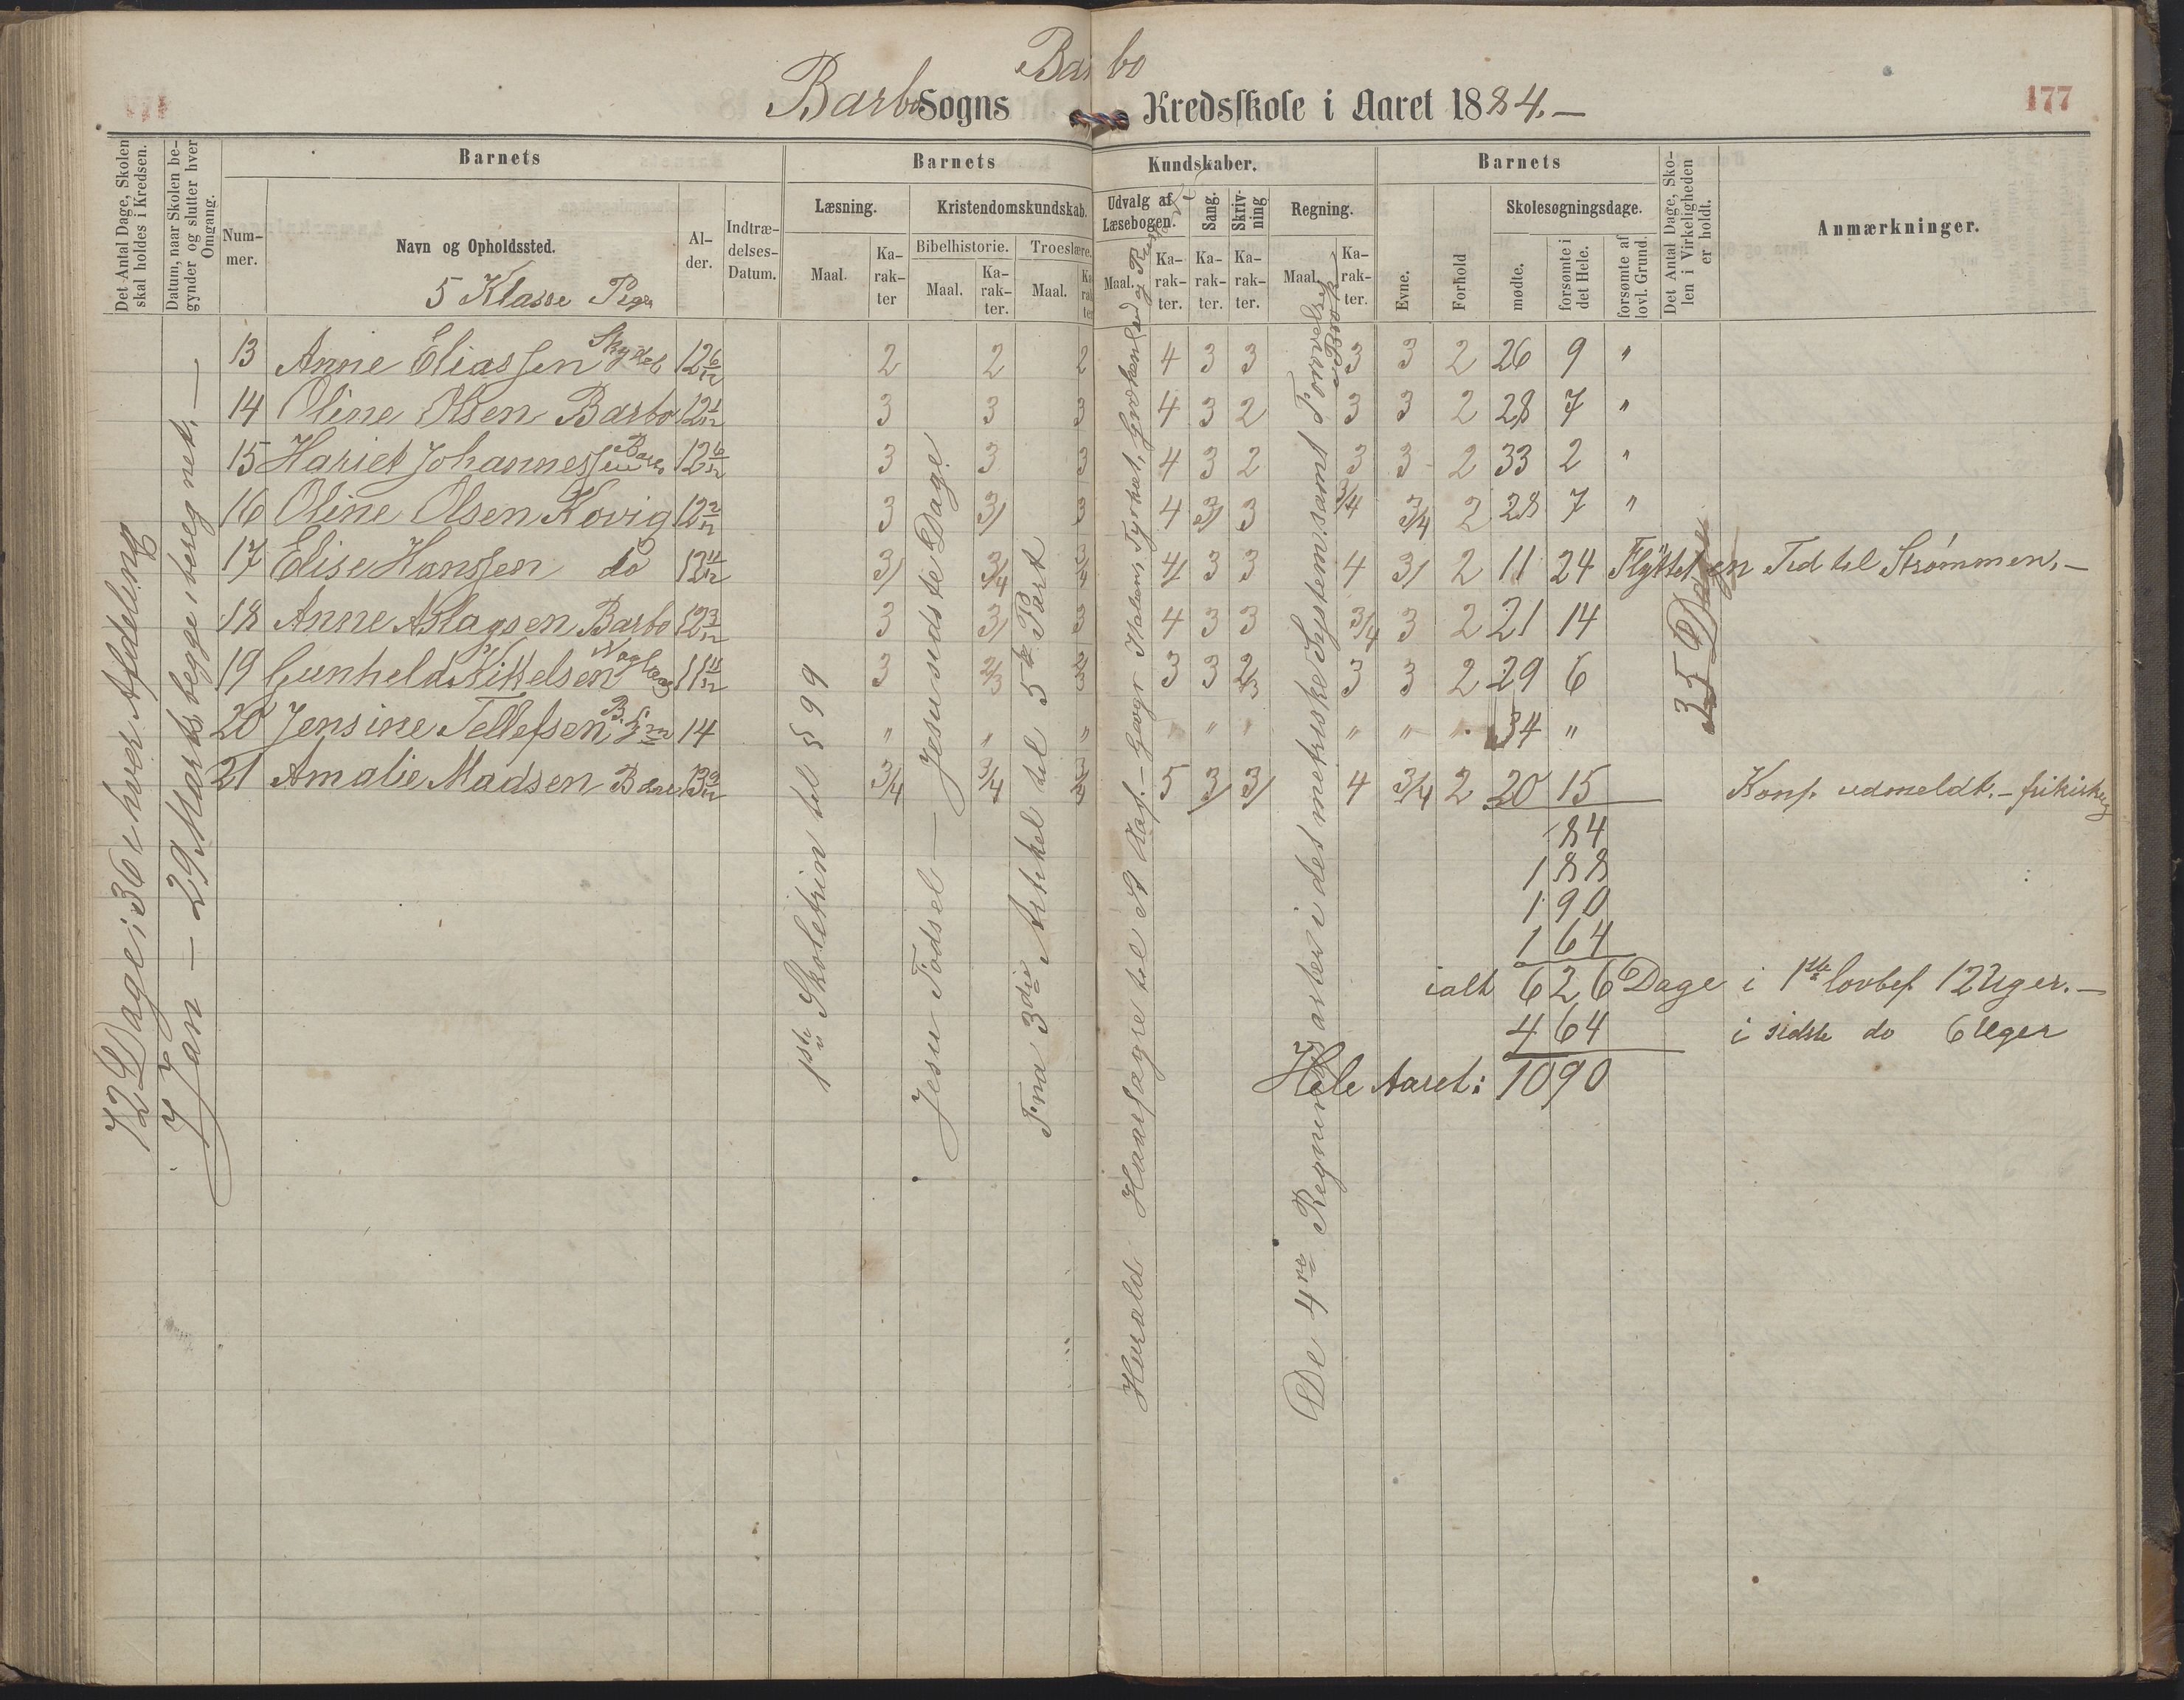 Barbo
Barbo Sogns Kredsskole i Aaret 1884.—
177
Det Antal Dage, Skolen skal holdes i Kredsen.
Datum, naar Skolen begynder og slutter hver Omgang.
Barnets
Num-mer.
Navn og Opholdssted.
5 Klasse Piger
Al-der.
Indtræ-delses-Datum.
Barnets Kundskaber.
Læsning.
Maal.
Ka-rak-ter
Kristendomskundskab.
Bibelhistorie.
Maal.
Ka-rak-ter.
Troeslære.
Maal.
Udvalg af Læsebogen.
Maal.
Ka-rak-ter.
Sang.
Ka-rak-ter.
Skriv-ning
Ka-rak-ter.
Regning.
Maal.
Ka-rak-ter.
Barnets
Evne.
Forhold
Skolesøgningsdage.
mødte.
forsømte i det Hele.
forsømte af lovl. Grund.
Det Antal Dage, Skolen i Virkeligheden er holdt.
Anmærkninger.
13 Anne Eliassen 12 6/12 2 2 2 4 3 3 3 3 2 26 9 "
14 Oline Olsen Barbo 12 1/12 3 3 3 4 3 2 3 3 2 28 7 "
15 Hariet Johannessen Barbo 12 6/12 3 3 3 4 3 2 3 3 2 33 2 "
16 Oline Olsen Kovig 12 2/12 3 3/ 3 4 3/ 3 3/4 3/4 2 28 7 "
17 Elise Hanssen do 12 11/12 3/ 3/4 3/4 4/ 3 3 4 3/ 2 11 24 Flyttet en Tid til Strømmen.—
18 Anne Aslagsen Barbo 12 3/12 3 3/ 3 4 3 3 3/4 3 2 21 14
19 Gunhild Kittelsen 11 11/12 3 2/3 3 3 3 2/3 3 3 2 29 6
20 Jensine Tellefsen 14 " " " " " " " " " 34 "
21 Amalie Madsen 13 9/12 3/4 3/4 3/4 5 3/ 3/ 4 3/4 2 20 15 Konf. udmeldt.—
84
188
190
164
ialt 626 Dage i 1ste lovbef. 12 Uger.—
464 i sidste do 6 Uger
Hele Aaret: 1090
72 Dage; 36 i hver Afdeling
7 Jan — 29 Marts, begge iberegnet.—
1ste Skoletrin til § 99
Jesu Fødsel — Jesu sidste Dage
Fra 3die Artikel til 5te Part
Harald Haarfagre til St Olaf.— Italien, Tyrkiet, Grækenland og Rusl
De 4re Regningsarter i det metriske System samt
35 Dage